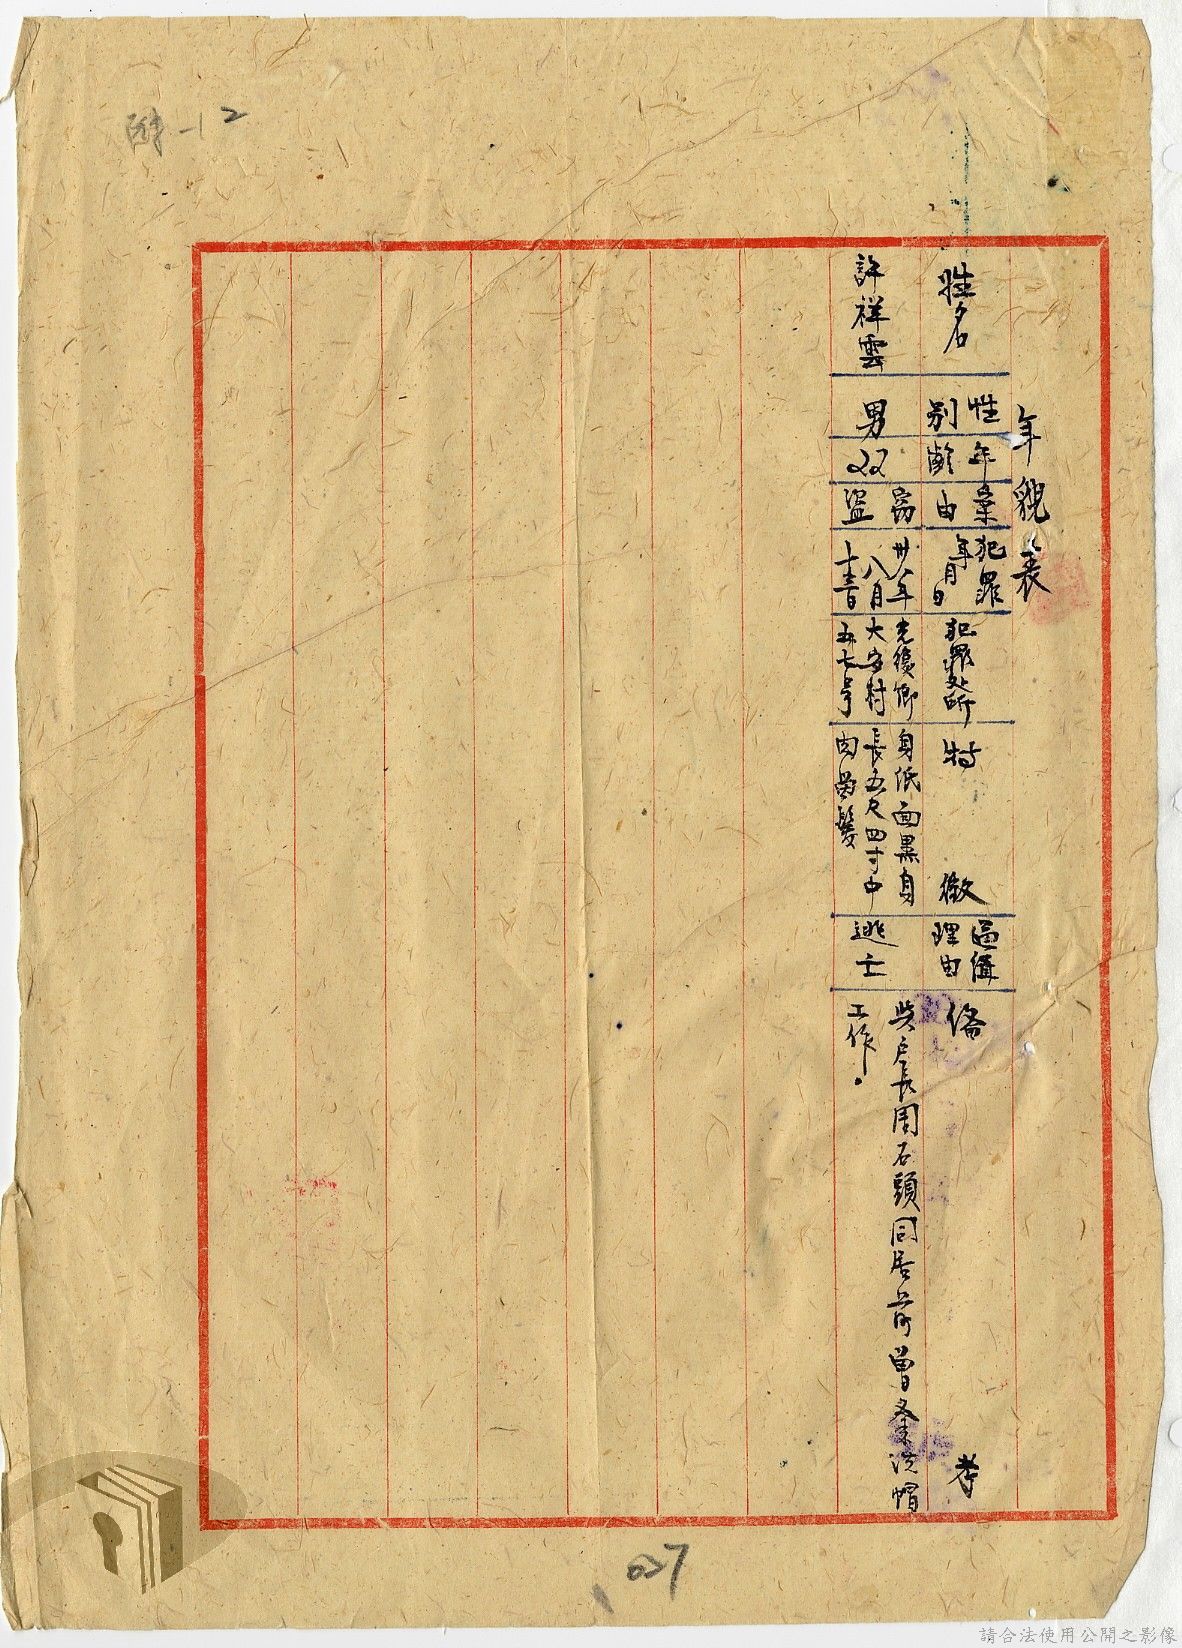 附-12
年貌表
姓名
性別
年齡
案由
犯罪年月日
犯罪處所
特徵
通緝理由
備考
許祥雲
男
22
竊盜
卅八年八月十三日
光復鄉大安村五七号
身低面黑身長五尺四寸中肉蓄髮
逃亡
與戶長周石頭同居前曾奎洗帽工作。
037
請合法使用公開之影像